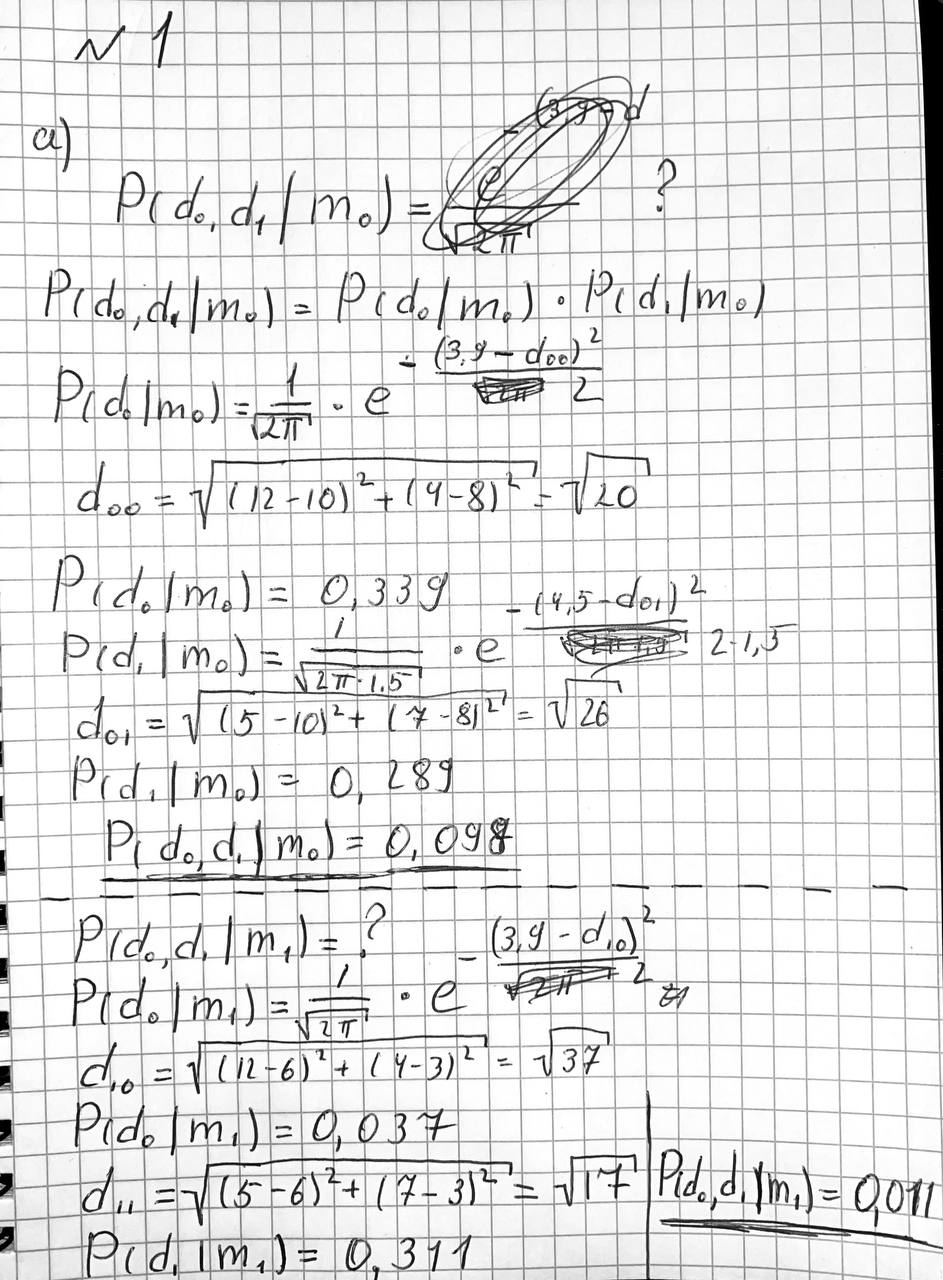 № 1
a)
P(d₀, d₁ / m₀) = ?
P(d₀, d₁ / m₀) = P(d₀ / m₀) · P(d₁ / m₀)
P(d₀ / m₀) = 1/√2π · e^-(3,9 - d₀₀)²/2
d₀₀ = √(12-10)² + (4-8)² = √20
P(d₀ / m₀) = 0,339
P(d₁ / m₀) = 1/√2π·1,5 · e^-(4,5 - d₀₁)²/2·1,5
d₀₁ = √(5-10)² + (7-8)² = √26
P(d₁ / m₀) = 0,289
P(d₀, d₁ / m₀) = 0,098
P(d₀, d₁ / m₁) = ?
P(d₀ / m₁) = 1/√2π · e^-(3,9 - d₁₀)²/2
d₁₀ = √(12-6)² + (4-3)² = √37
P(d₀ / m₁) = 0,037
d₁₁ = √(5-6)² + (7-3)² = √17
P(d₁ / m₁) = 0,311
P(d₀, d₁ / m₁) = 0,011